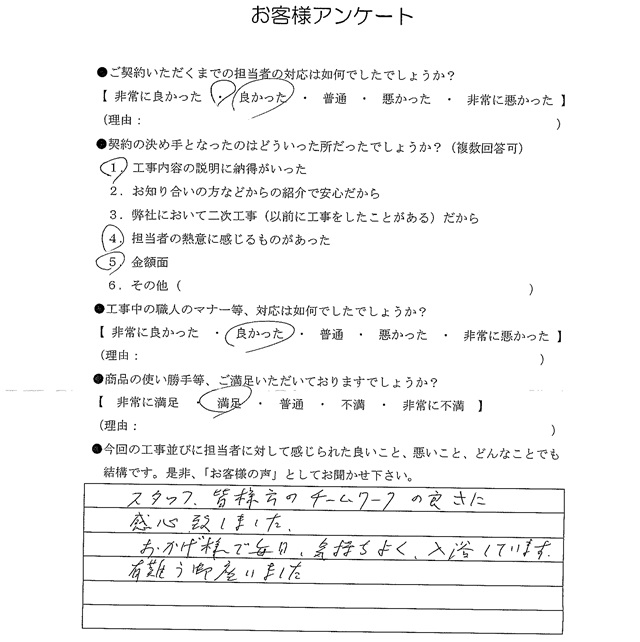 お客様アンケート
●ご契約いただくまでの担当者の対応は如何でしたでしょうか？
【 非常に良かった ・ 良かった ・ 普通 ・ 悪かった ・ 非常に悪かった 】
（理由： ）
●契約の決め手となったのはどういった所だったでしょうか？（複数回答可）
１．工事内容の説明に納得がいった
２．お知り合いの方などからの紹介で安心だから
３．弊社において二次工事（以前に工事をしたことがある）だから
４．担当者の熱意に感じるものがあった
５．金額面
６．その他（ ）
●工事中の職人のマナー等、対応は如何でしたでしょうか？
【 非常に良かった ・ 良かった ・ 普通 ・ 悪かった ・ 非常に悪かった 】
（理由： ）
●商品の使い勝手等、ご満足いただいておりますでしょうか？
【 非常に満足 ・ 満足 ・ 普通 ・ 不満 ・ 非常に不満 】
（理由： ）
●今回の工事並びに担当者に対して感じられた良いこと、悪いこと、どんなことでも
結構です。是非、「お客様の声」としてお聞かせ下さい。
スタッフ、皆様方のチームワークの良さに
感心致しました、
おかげ様で毎日、気持ちよく、入浴しています。
有難う御座いました